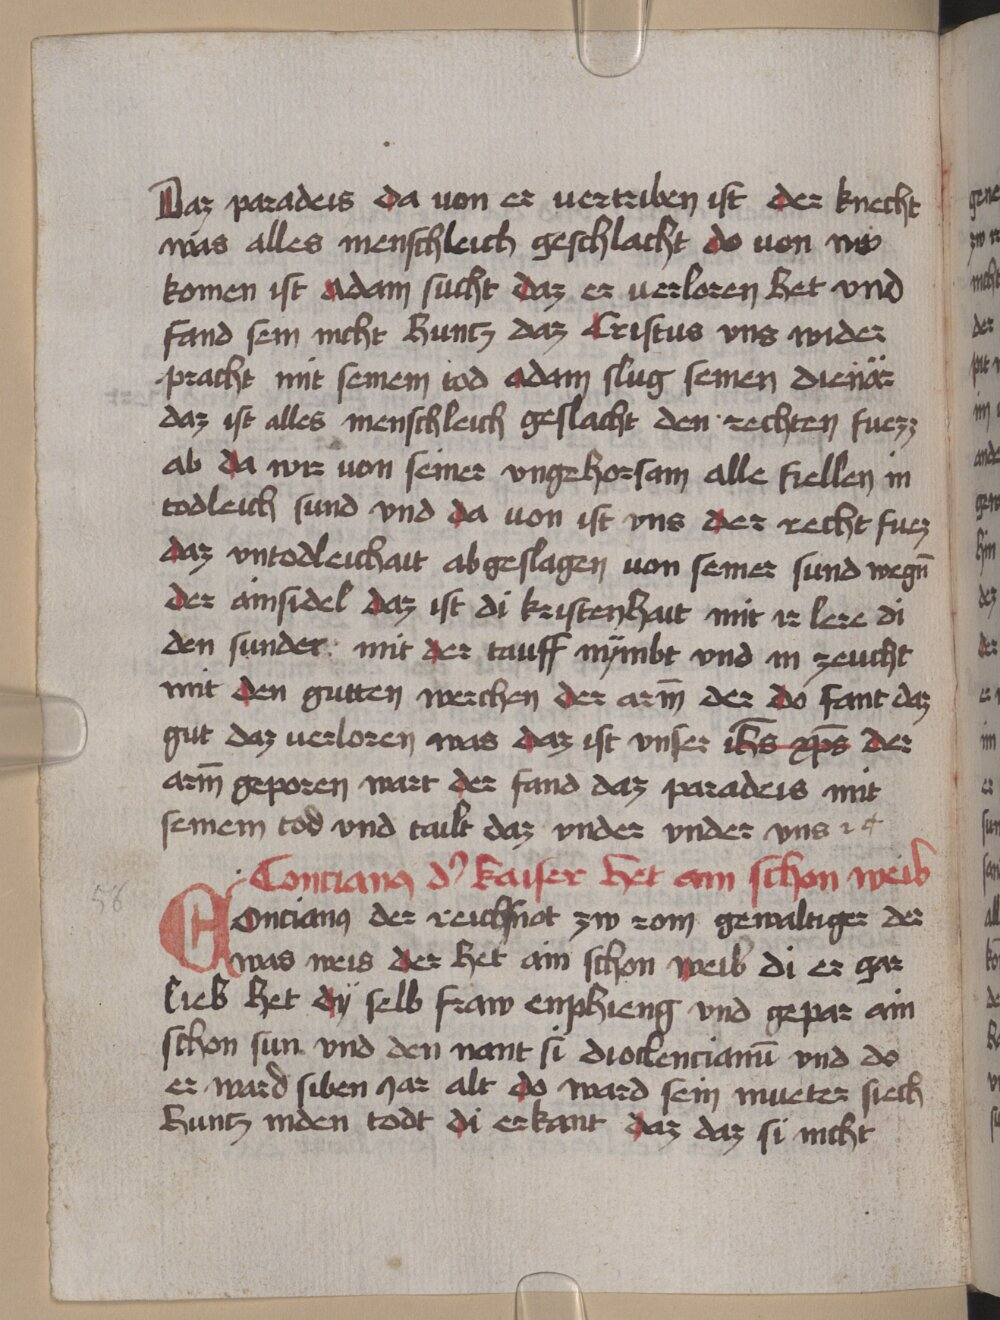 Daz paradeis da von er vertriben ist der knecht
was alles menschleich geschlacht do von wo
komen ist adam sucht daz er verloren het vnd
fand sein nicht huntz daz Cristus vns wider
pracht mit seinem tod adam slug seinen dienär
daz ist alles menschleich geslacht den rechten fuezz
ab da wir von seiner vngehorsam alle fiellen in
todleich sund vnd da von ist vns der recht fuez
daz vntodleichait abgeslagen von seiner sund wegn̄
der ainsidel daz ist di kristenhait mit ir lere di
den sunder mit der tauff nÿmbt vnd in zeucht
mit den gutten werchen der arm̄ der do fant daz
gut daz verloren was daz ist vnser ih̄s xp̄s der
arm̄ geporen wart der fand daz paradeis mit
seinem tod vnd tailt daz vnder vnder vns ⁊ ꝯ
Concianꝯ d' kaiser het ain schon weib
Concianꝯ der reichsnot zw rom gewaltiger der
was weis der het ain schon weib di er gar
lieb het dÿ selb fraw enphieng vnd gepar ain
schon sun vnd den nant si dioclencianū vnd do
er ward siben jar alt do ward sein mueter siech
huntz inden todt di erkant daz daz si nicht
56